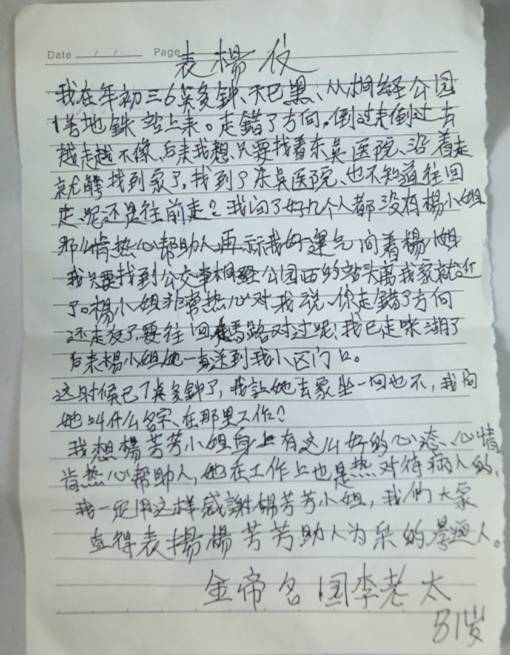 Date / / Page
表楊伩
我在年初三6点多钟、天已黑、从相经公园
1号地铁站上来。走错了方向。倒过来倒过去
越走越不像、后来我想、只要找着东吴医院、沿着走
就能找到家了,找到了东吴医院、也不知道往回
走呢还是往前走?我问了好几个人都没有楊小姐
那么情热心帮助人再 我好運气问着楊小姐
我只要找到公交車相 公园西的站头离我家就近
了。楊小姐非常热心对我说、你走错了方向
还走反了,要往回 馬路对过呢,我已走咪湖了
后来楊小姐她一直送到我小区门口。
这时候已7点多钟了,我 她去家坐一回也不,我问
她叫什么名字、在那里工作?
我想楊芳芳小姐身上有这么好的心 、心情
肯热心帮助人,她在工作上也是热对待病人的、
我一定用这样感謝楊芳芳小姐,我们大家
 得表揚楊芳芳助人为乐的 通人。
金帝名国李老太
81岁